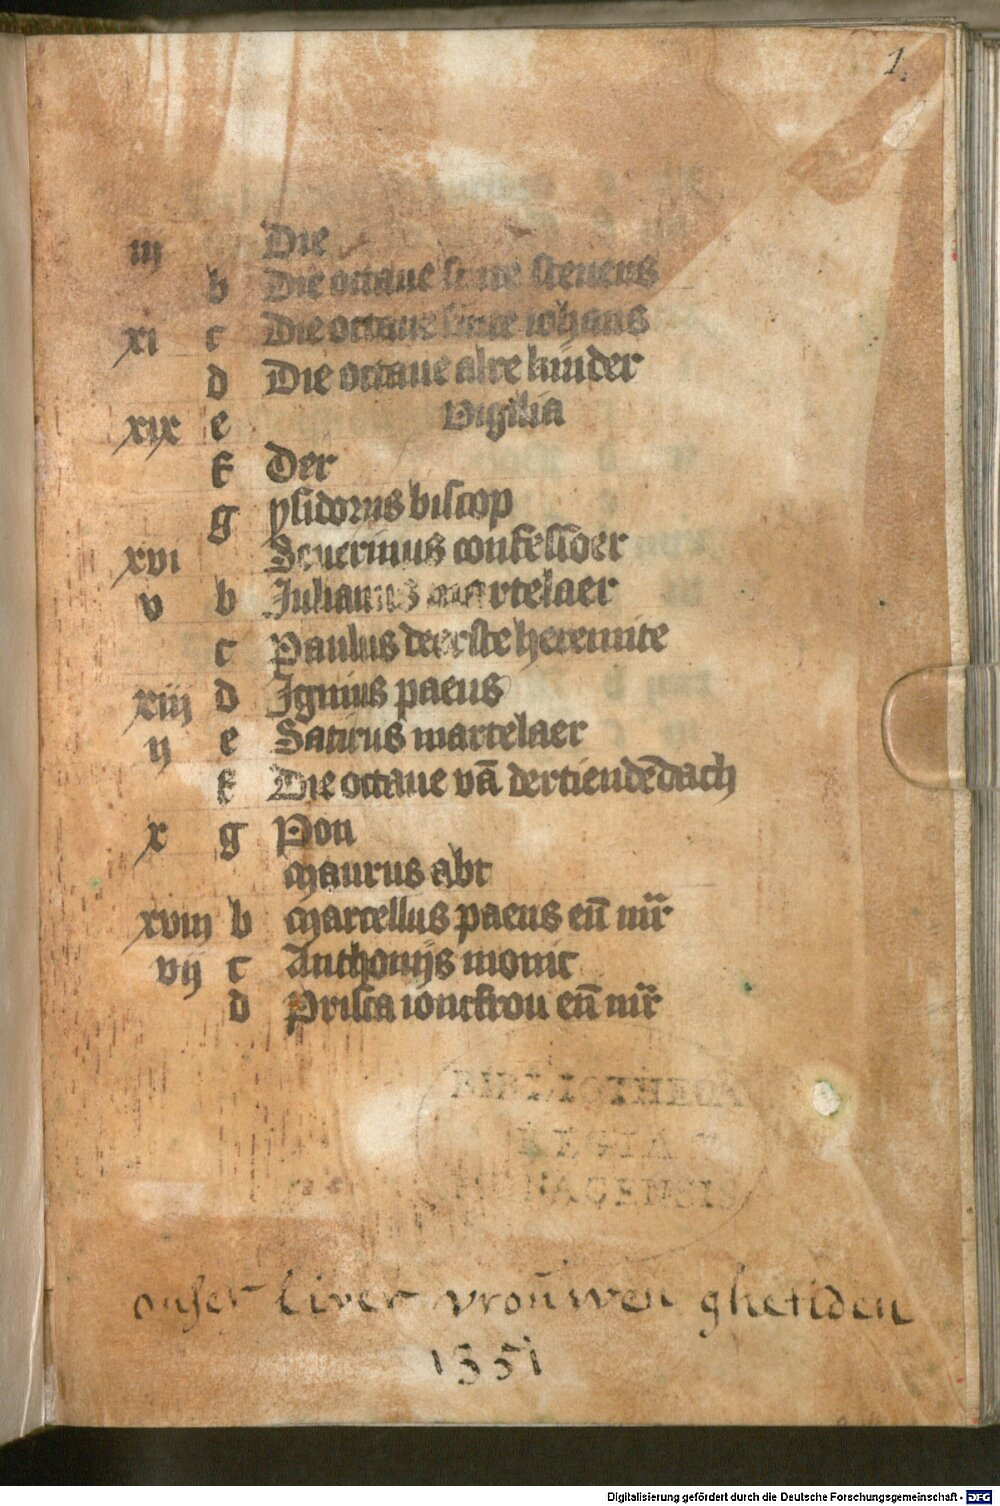 1.
iij Die
b Die octaue sinte steuens
xi c Die octaue sinte iohans
d Die octaue alre kinder
xix e Vigilia
f Der
g ysidorus biscop
xvi Seuerinus confessoer
v b Julianus martelaer
c Paulus deerste heremite
xiij d Ignius paeus
ij e Satirus martelaer
f Die octaue vā dertiendēdach
x g Pon
Maurus abt
xviij b Marcellus paeus en̄ mr̄
vij c Anthonijs monic
d Prisca ionckfrou en̄ mr̄
BIBLIOTHECA
REGIA
MONACENSIS
onser liver vrouwen ghetiden
1351
Digitalisierung gefördert durch die Deutsche Forschungsgemeinschaft - DFG